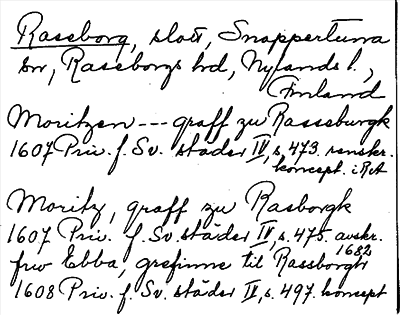 Raseborg, slott, Snappertuna
sn, Raseborgs hd, Nylands l.,
Finland
Moritzen --- graff zu Rasseburgk
1607 Priv. f. Sv. städer IV, s. 473. renskr.
koncept. i RA
Moritz, graff zu Rasborgk
1607 Priv. f. Sv. städer IV, s. 475. avskr.
1682
frw Ebba, grefinne til Rassborgh
1608 Priv. f. Sv. städer IV, s. 497. koncept